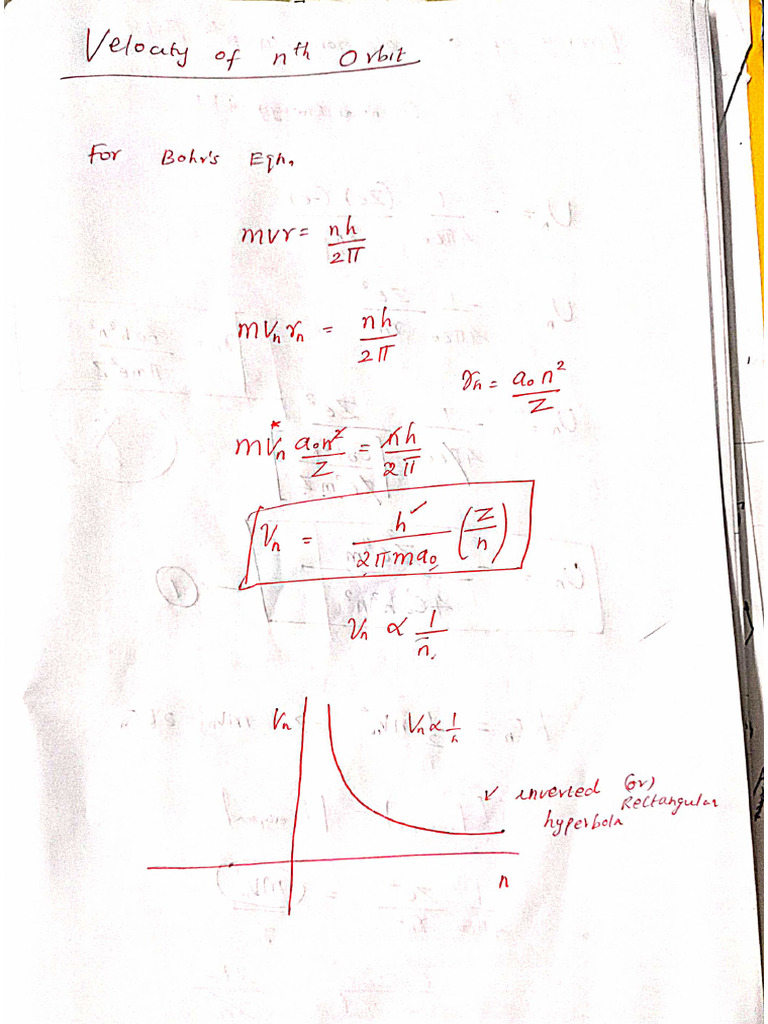 Velocity of nth Orbit
For Bohr's Eqn,
mvr = nh/2π
mvₙrₙ = nh/2π
rₙ = a₀n²/Z
mvₙ a₀n²/Z = nh/2π
Vₙ = h/2πma₀ (Z/n)
Vₙ ∝ 1/n
Vₙ
Vₙ ∝ 1/n
✓ inverted (or) Rectangular
hyperbola
n